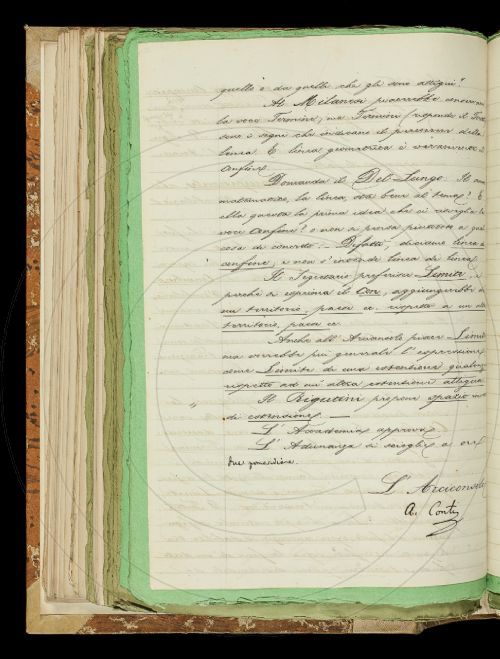 quello e da quelle che gli sono attigui".
Al Milanesi piacerebbe
la voce Termine; ma Termini risponde il
sono i segni che indicano il
linea. E linea geometrica è veramente il
confine.
Domanda il Del-Lungo: Il
matematico, la linea, sta bene al tema? È
ella questa la prima idea che ci risveglia la
voce Confine? o non si pensa piuttosto a qual
cosa di concreto? – Difatti, diciamo linea di
confine, e non s'intende linea di linea.
Il Segretario preferisce Limite, e
perchè si esprima il Con, aggiungerebbe di
un territorio, paese ec. rispetto a un altro
territorio, paese ec.
Anche all'Arciconsolo piace Limite
ma vorrebbe più generale l'espressione
come Limite di una estensione qualunque
rispetto ad un'altra estensione attigua.
Il Rigutini propone spazio
di estensione.
L'Accademia approva.
L'Adunanza si scioglie a ore
due pomeridiane.
L'Arciconsolo
A. Conti